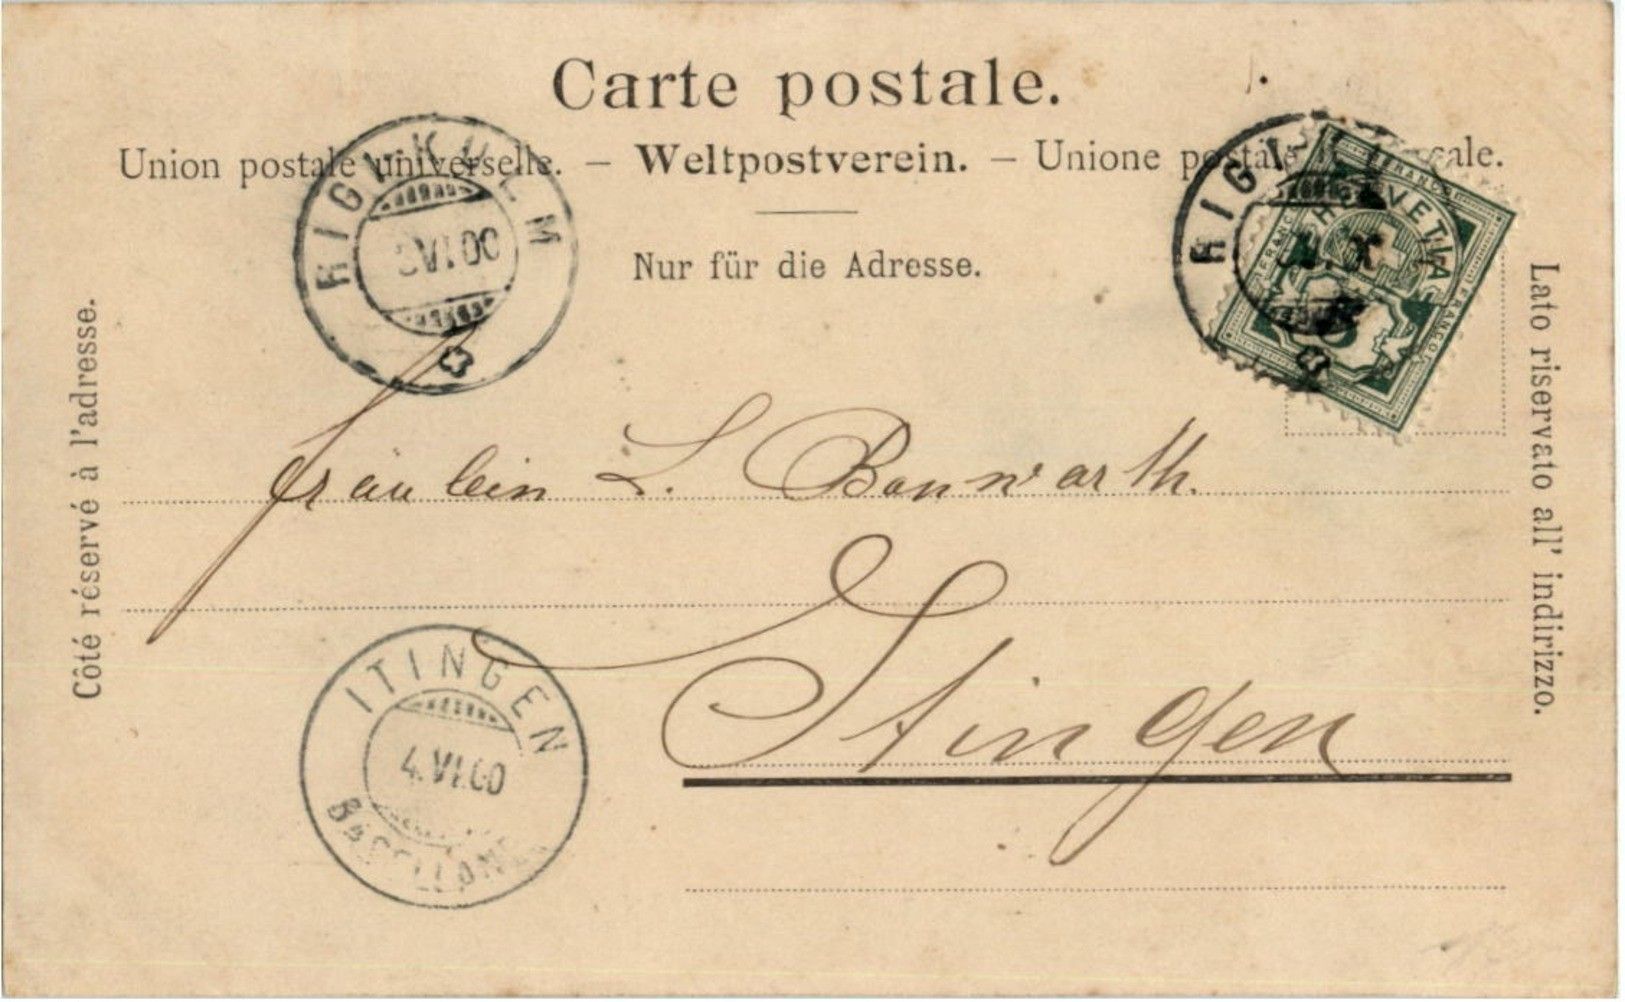 Carte postale.
Union postale universelle. – Weltpostverein. – Unione postale
Nur für die Adresse.
RIGI-KULM
VI.00
RIGI-
HELVETIA
FRANCO FRANCO FRANCO
Côté réservé à l'adresse.
Lato riservato all' indirizzo.
Fräulein L. Bannwarth.
Itingen
ITINGEN
4.VI.00
BASELLAND